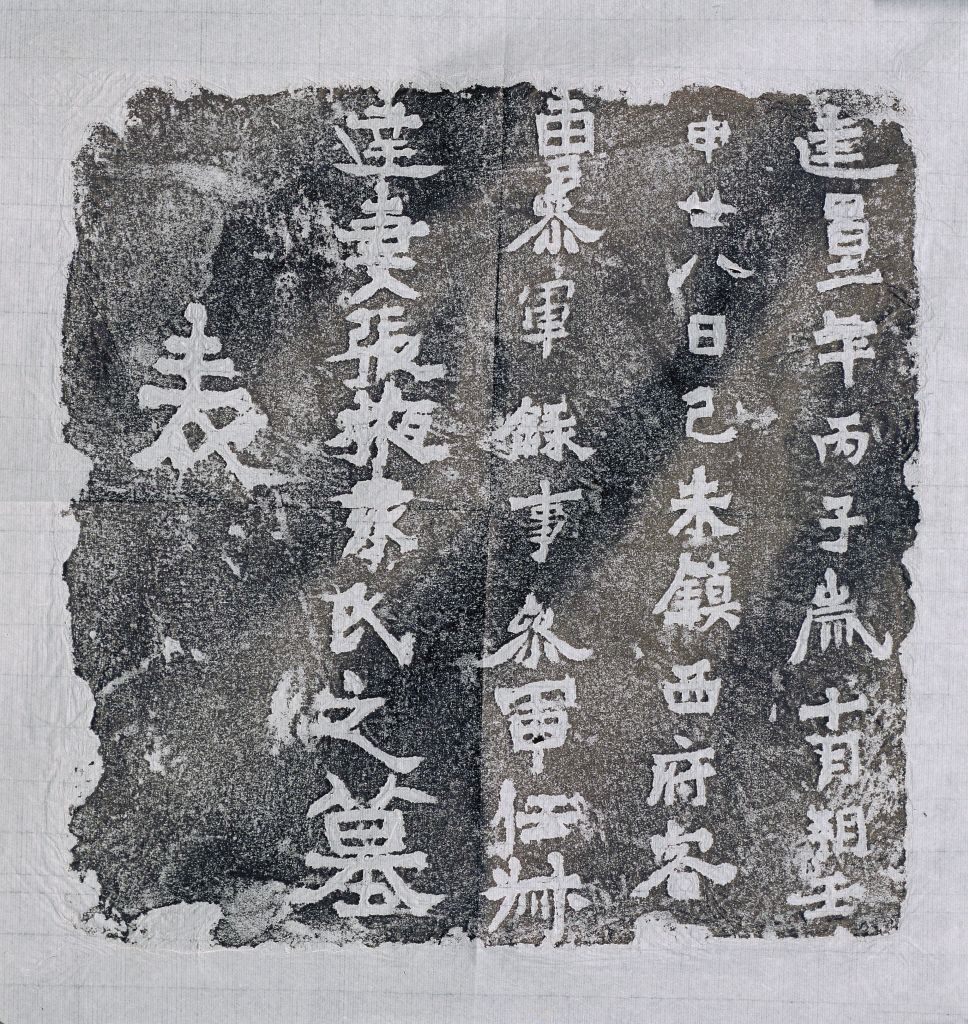 建昌二年丙子歲十一月朔壬
申廿八日己未鎮西府客
曹參軍錄事參軍任叔
達妻張掖袁氏之墓
表